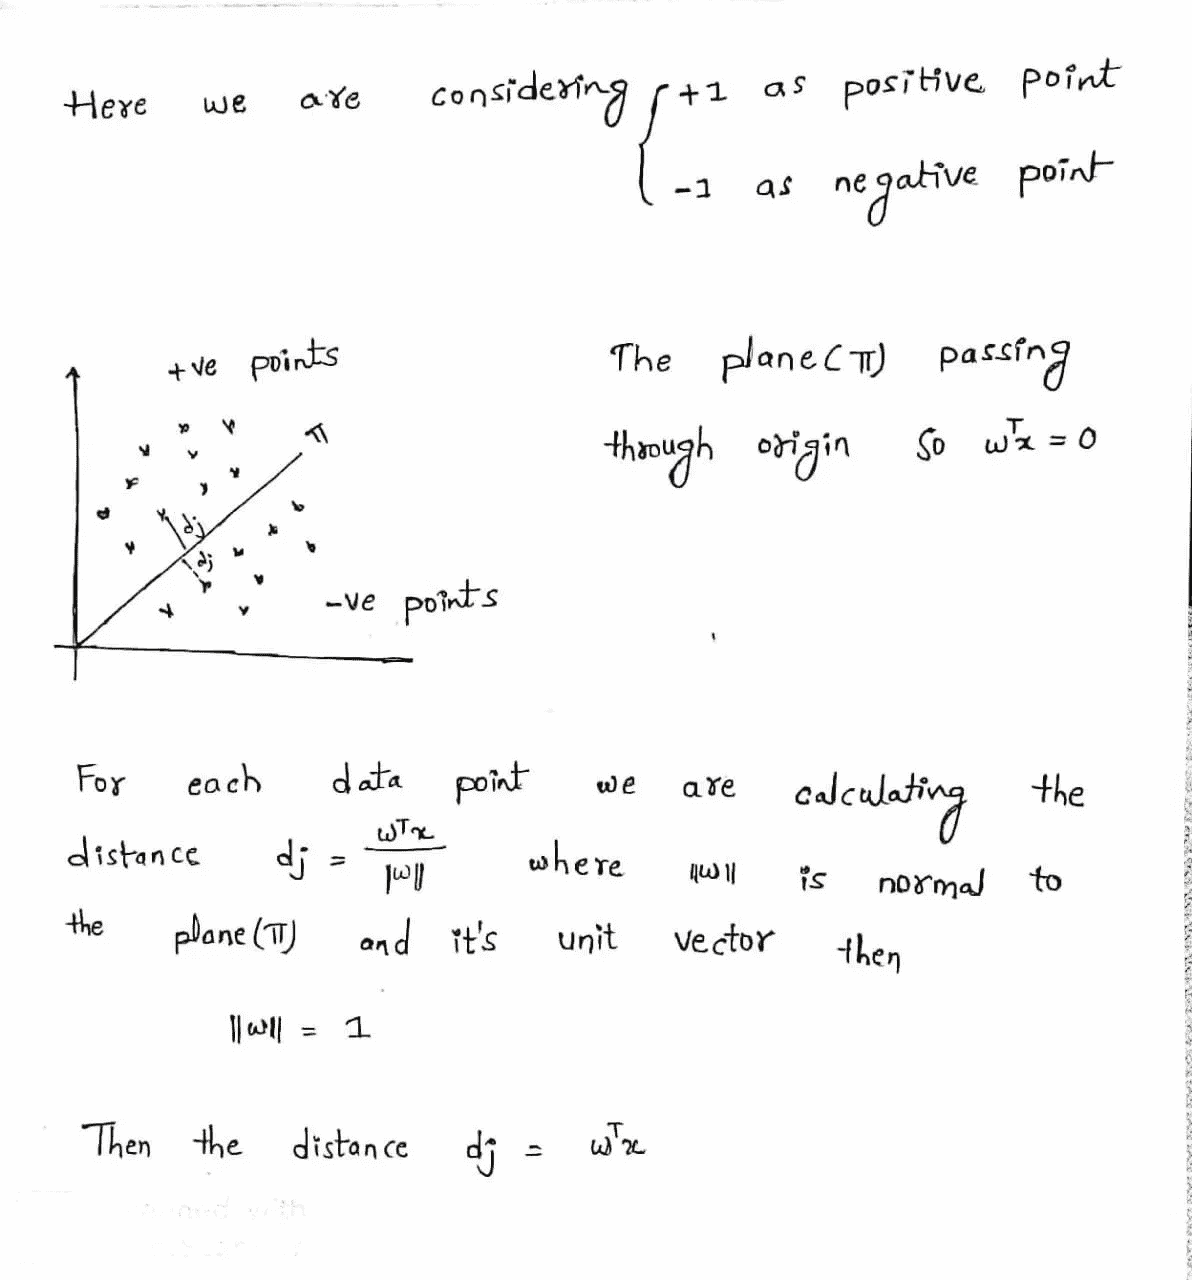 Here we are considering { +1 as positive point
-1 as negative point
+ve points
π
dj
dj
-ve points
The plane(π) passing
through origin So wᵀx = 0
For each data point we are calculating the
distance dj = wᵀx / ||w|| where ||w|| is normal to
the plane(π) and it's unit vector then
||w|| = 1
Then the distance dj = wᵀx